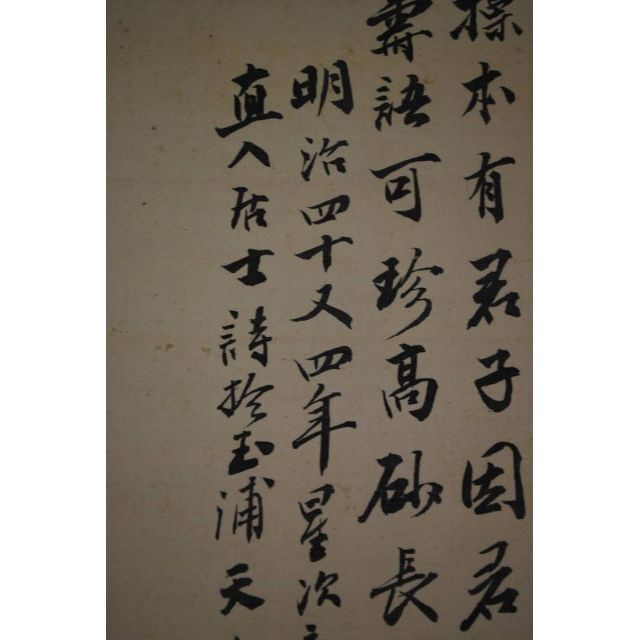 操本有君子因君
霽語可珍高砂長
明治四十又四年星次
直入居士詩於玉浦天